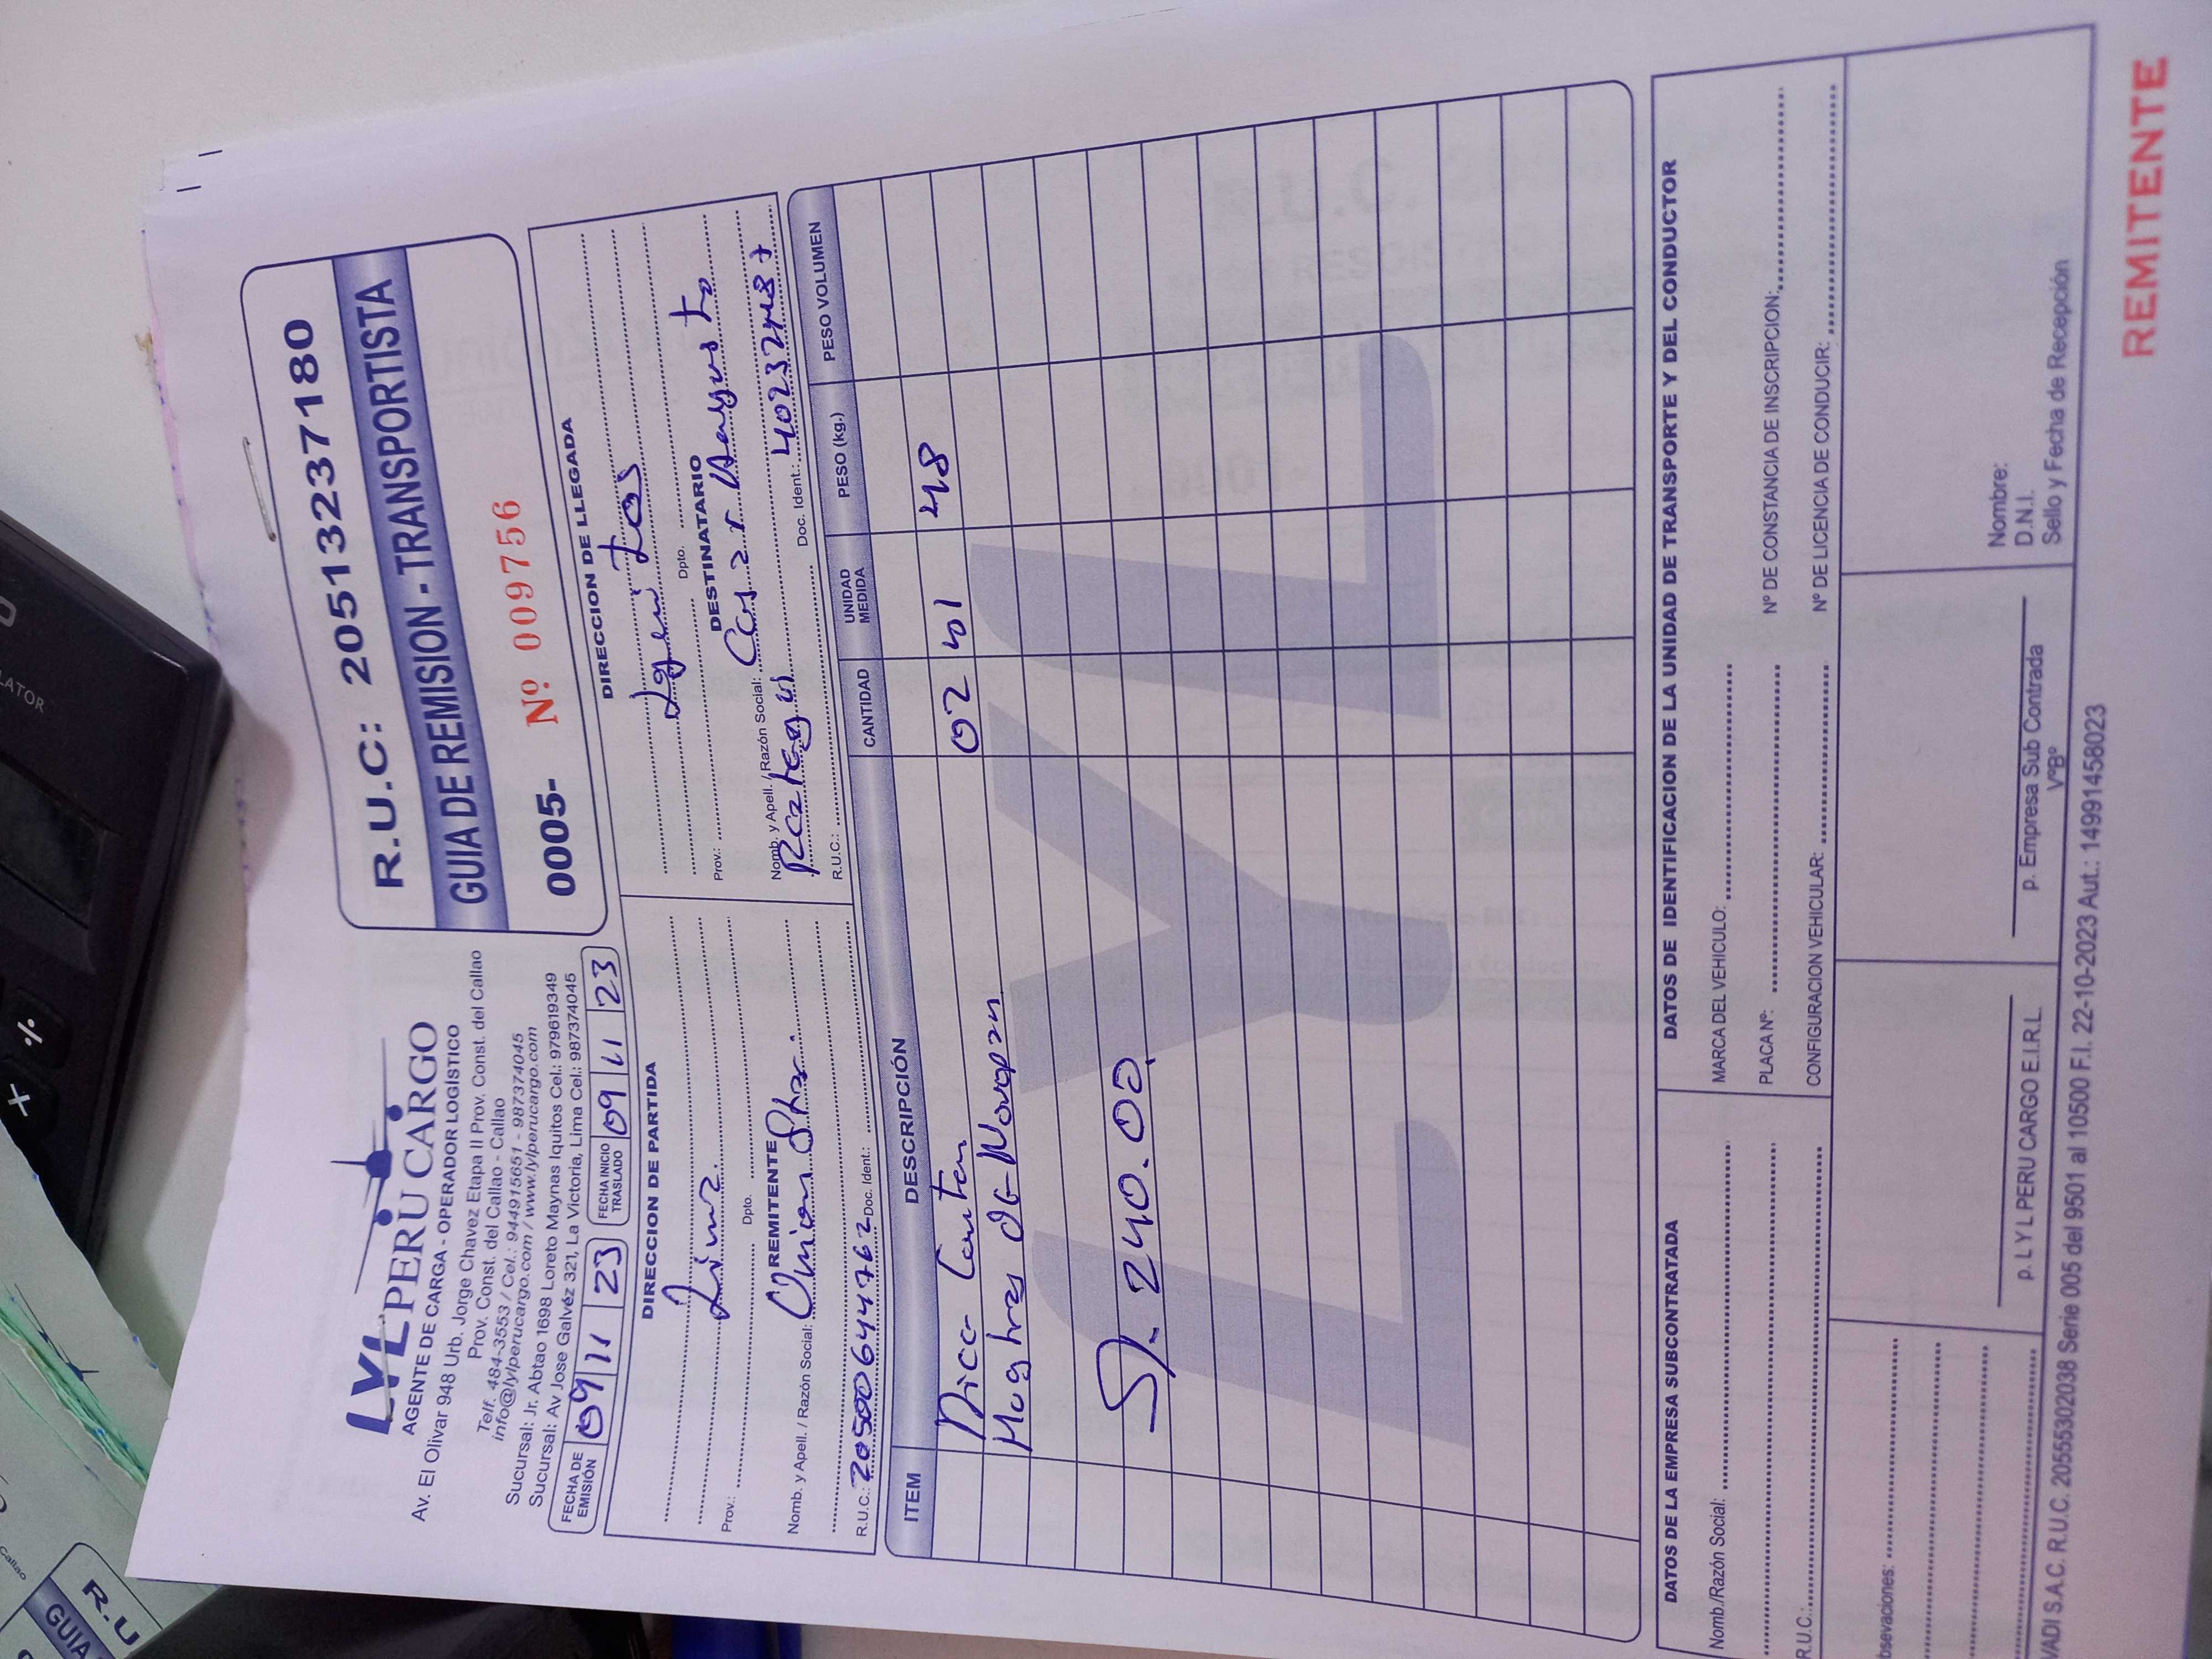 LYL PERU CARGO
AGENTE DE CARGA - OPERADOR LOGÍSTICO
Av. El Olivar 948 Urb. Jorge Chavez Etapa II Prov. Const. del Callao
Prov. Const. del Callao - Callao
Telf. 484-3553 / Cel.: 944915651 - 987374045
info@lylperucargo.com / www.lylperucargo.com
Sucursal: Jr. Abtao 1698 Loreto Maynas Iquitos Cel.: 979619349
Sucursal: Av Jose Galvéz 321, La Victoria, Lima Cel.: 987374045
R.U.C: 20513237180
GUIA DE REMISION - TRANSPORTISTA
0005- Nº 009756
FECHA DE EMISIÓN 09 11 23 FECHA INICIO TRASLADO 09 11 23
DIRECCION DE PARTIDA
Lima.
Prov.: Dpto.
REMITENTE
Nomb. y Apell. / Razón Social: Union Star.
R.U.C.: 20500644762 Doc. Ident.:
DIRECCION DE LLEGADA
Prov.: Dpto.
DESTINATARIO
Nomb. y Apell. / Razón Social: Cesar Augusto
Reategui Doc. Ident.:
R.U.C.:
ITEM DESCRIPCIÓN CANTIDAD UNIDAD MEDIDA PESO (kg.) PESO VOLUMEN
Dice Conten 02 48
Muestras de Novopan
S/. 240.00
DATOS DE LA EMPRESA SUBCONTRATADA
Nomb./Razón Social:
R.U.C.:
DATOS DE IDENTIFICACION DE LA UNIDAD DE TRANSPORTE Y DEL CONDUCTOR
MARCA DEL VEHICULO:
PLACA Nº: Nº DE CONSTANCIA DE INSCRIPCION:
CONFIGURACION VEHICULAR: Nº DE LICENCIA DE CONDUCIR:
bsevaciones:
p. L Y L PERU CARGO E.I.R.L.
p. Empresa Sub Contrada
VºBº
Nombre:
D.N.I.
Sello y Fecha de Recepción
VADI S.A.C. R.U.C. 20555302038 Serie 005 del 9501 al 10500 F.I. 22-10-2023 Aut.: 14991458023
REMITENTE
LATOR
%
×
Callao
R.U
GUIA